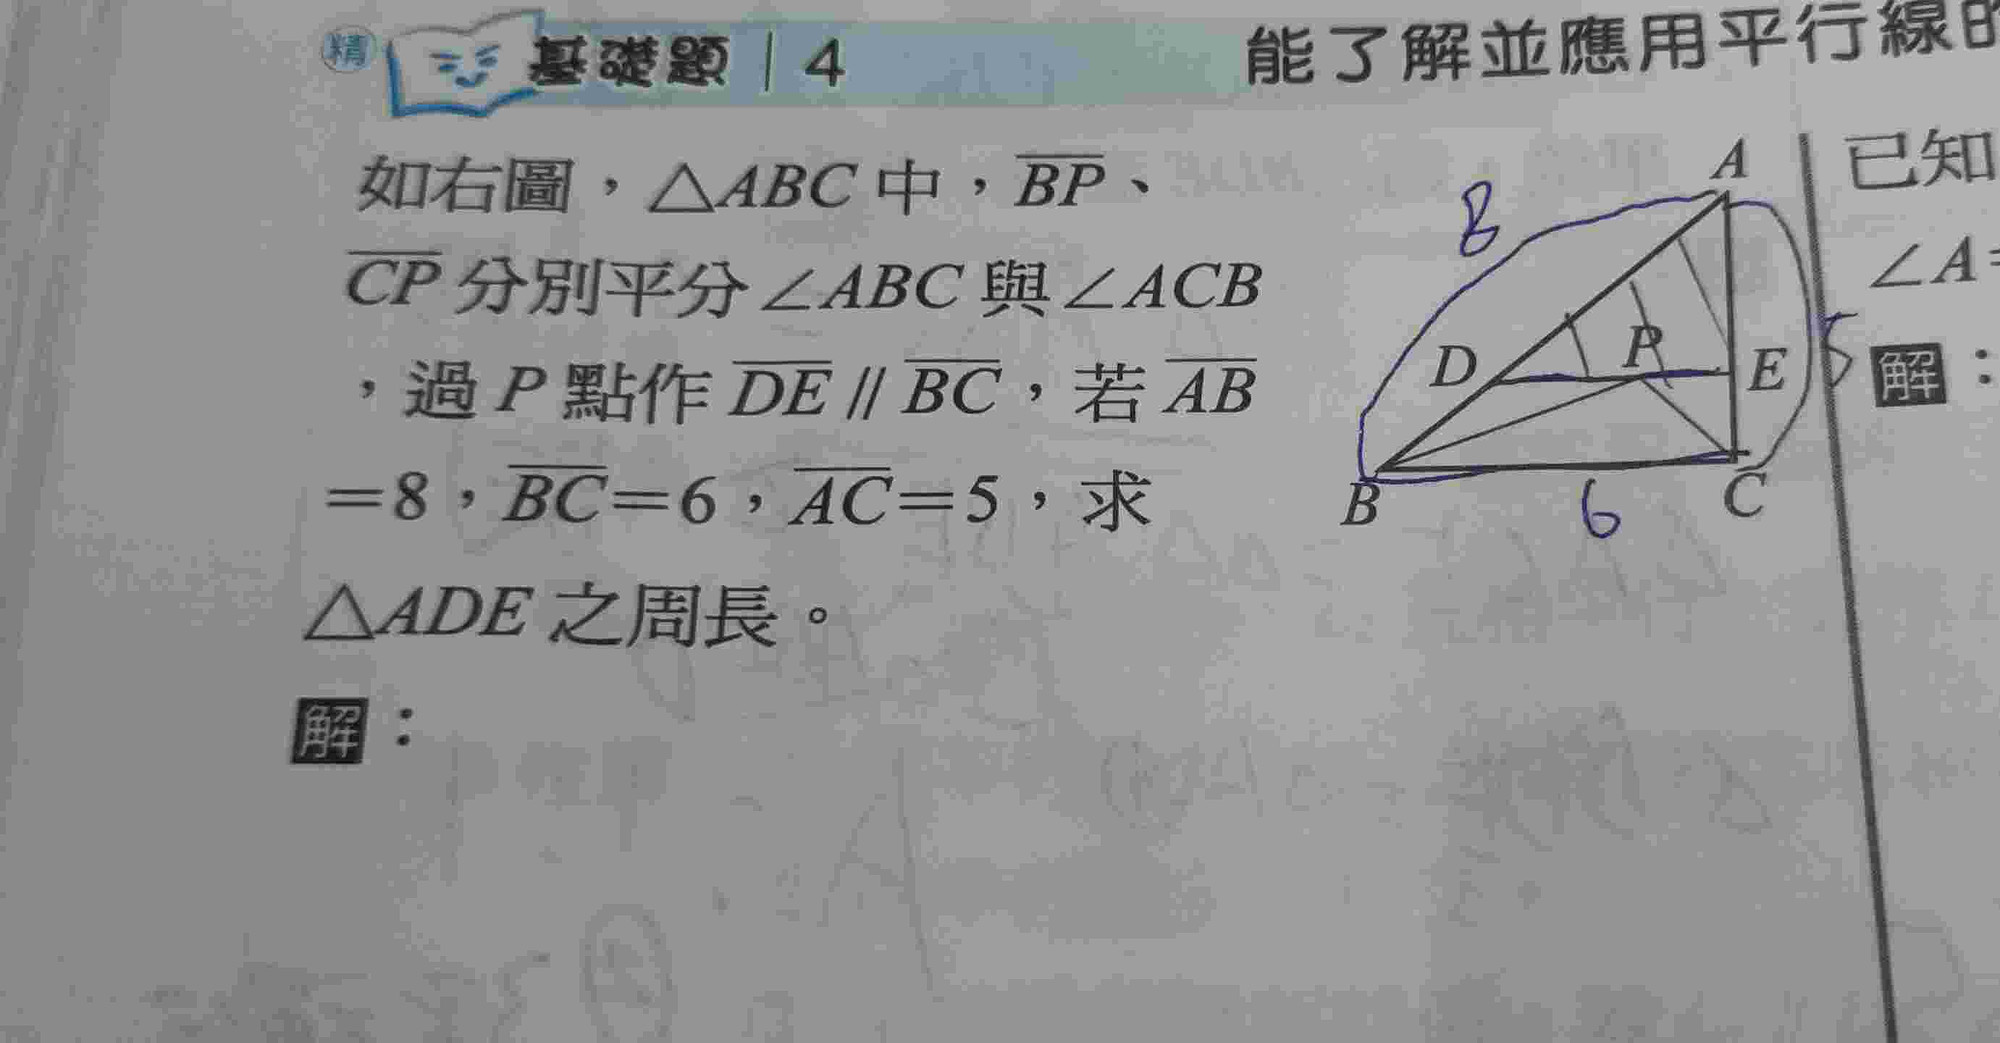 精 基礎題 | 4
能了解並應用平行線
如右圖，△ABC 中，BP、
CP 分別平分∠ABC 與∠ACB
，過 P 點作 DE // BC，若 AB
=8，BC=6，AC=5，求
△ADE 之周長。
解：
A
8
D
P
E
5
B
6
C
已知
∠A=
解：